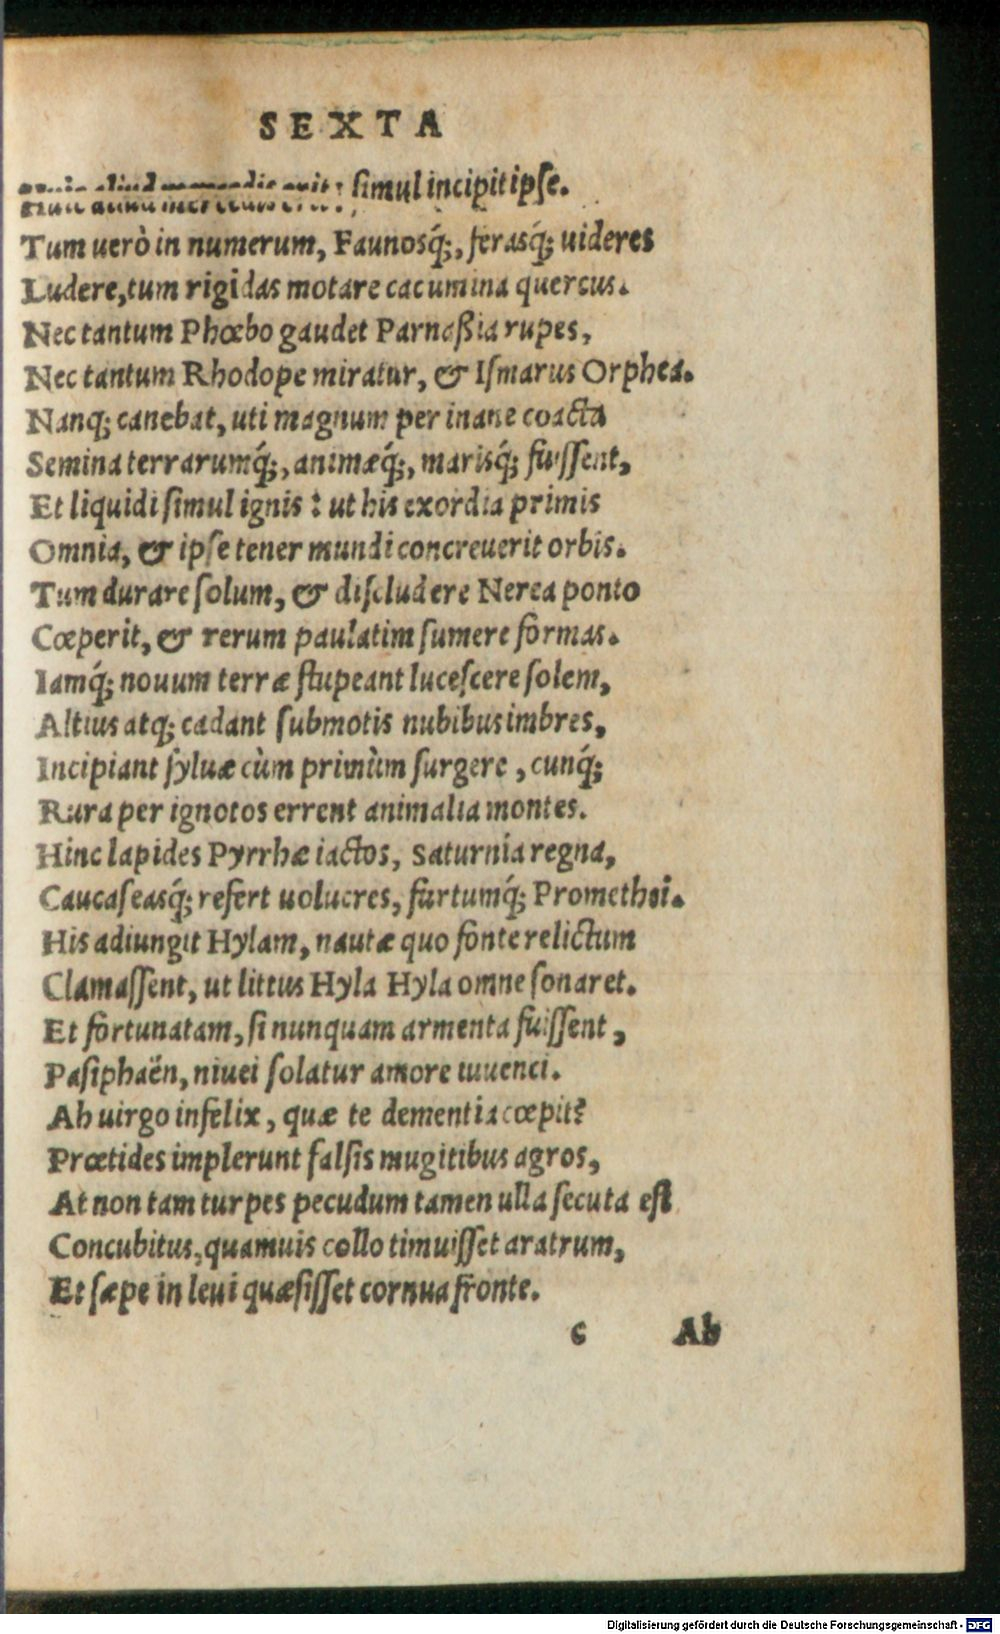 SEXTA
simul incipit ipse.
Tum uerò in numerum, Faunosq́;, ferasq́; uideres
Ludere, tum rigidas motare cacumina quercus.
Nec tantum Phœbo gaudet Parnaßia rupes,
Nec tantum Rhodope miratur, & Iſmarus Orphea.
Nanq; canebat, uti magnum per inane coacta
Semina terrarumq́;, animæq́;, marisq́; fuiſſent,
Et liquidi ſimul ignis: ut his exordia primis
Omnia, & ipſe tener mundi concreuerit orbis.
Tum durare ſolum, & diſcludere Nerea ponto
Cœperit, & rerum paulatim ſumere formas.
Iamq́; nouum terræ ſtupeant luceſcere ſolem,
Altius atq; cadant ſubmotis nubibus imbres,
Incipiant ſyluæ cùm primùm ſurgere, cunq́;
Rara per ignotos errent animalia montes.
Hinc lapides Pyrrhæ iactos, Saturnia regna,
Caucaſeasq́; refert uolucres, furtumq́; Promethei.
His adiungit Hylam, nautæ quo fonte relictum
Clamaſſent, ut littus Hyla Hyla omne ſonaret.
Et fortunatam, ſi nunquam armenta fuiſſent,
Paſiphaën, niuei ſolatur amore iuuenci.
Ah uirgo infelix, quæ te dementia cœpit?
Prœtides implerunt falſis mugitibus agros,
At non tam turpes pecudum tamen ulla ſecuta eſt
Concubitus, quamuis collo timuiſſet aratrum,
Et ſæpe in leui quæſiſſet cornua fronte.
c Ah
Digitalisierung gefördert durch die Deutsche Forschungsgemeinschaft - DFG